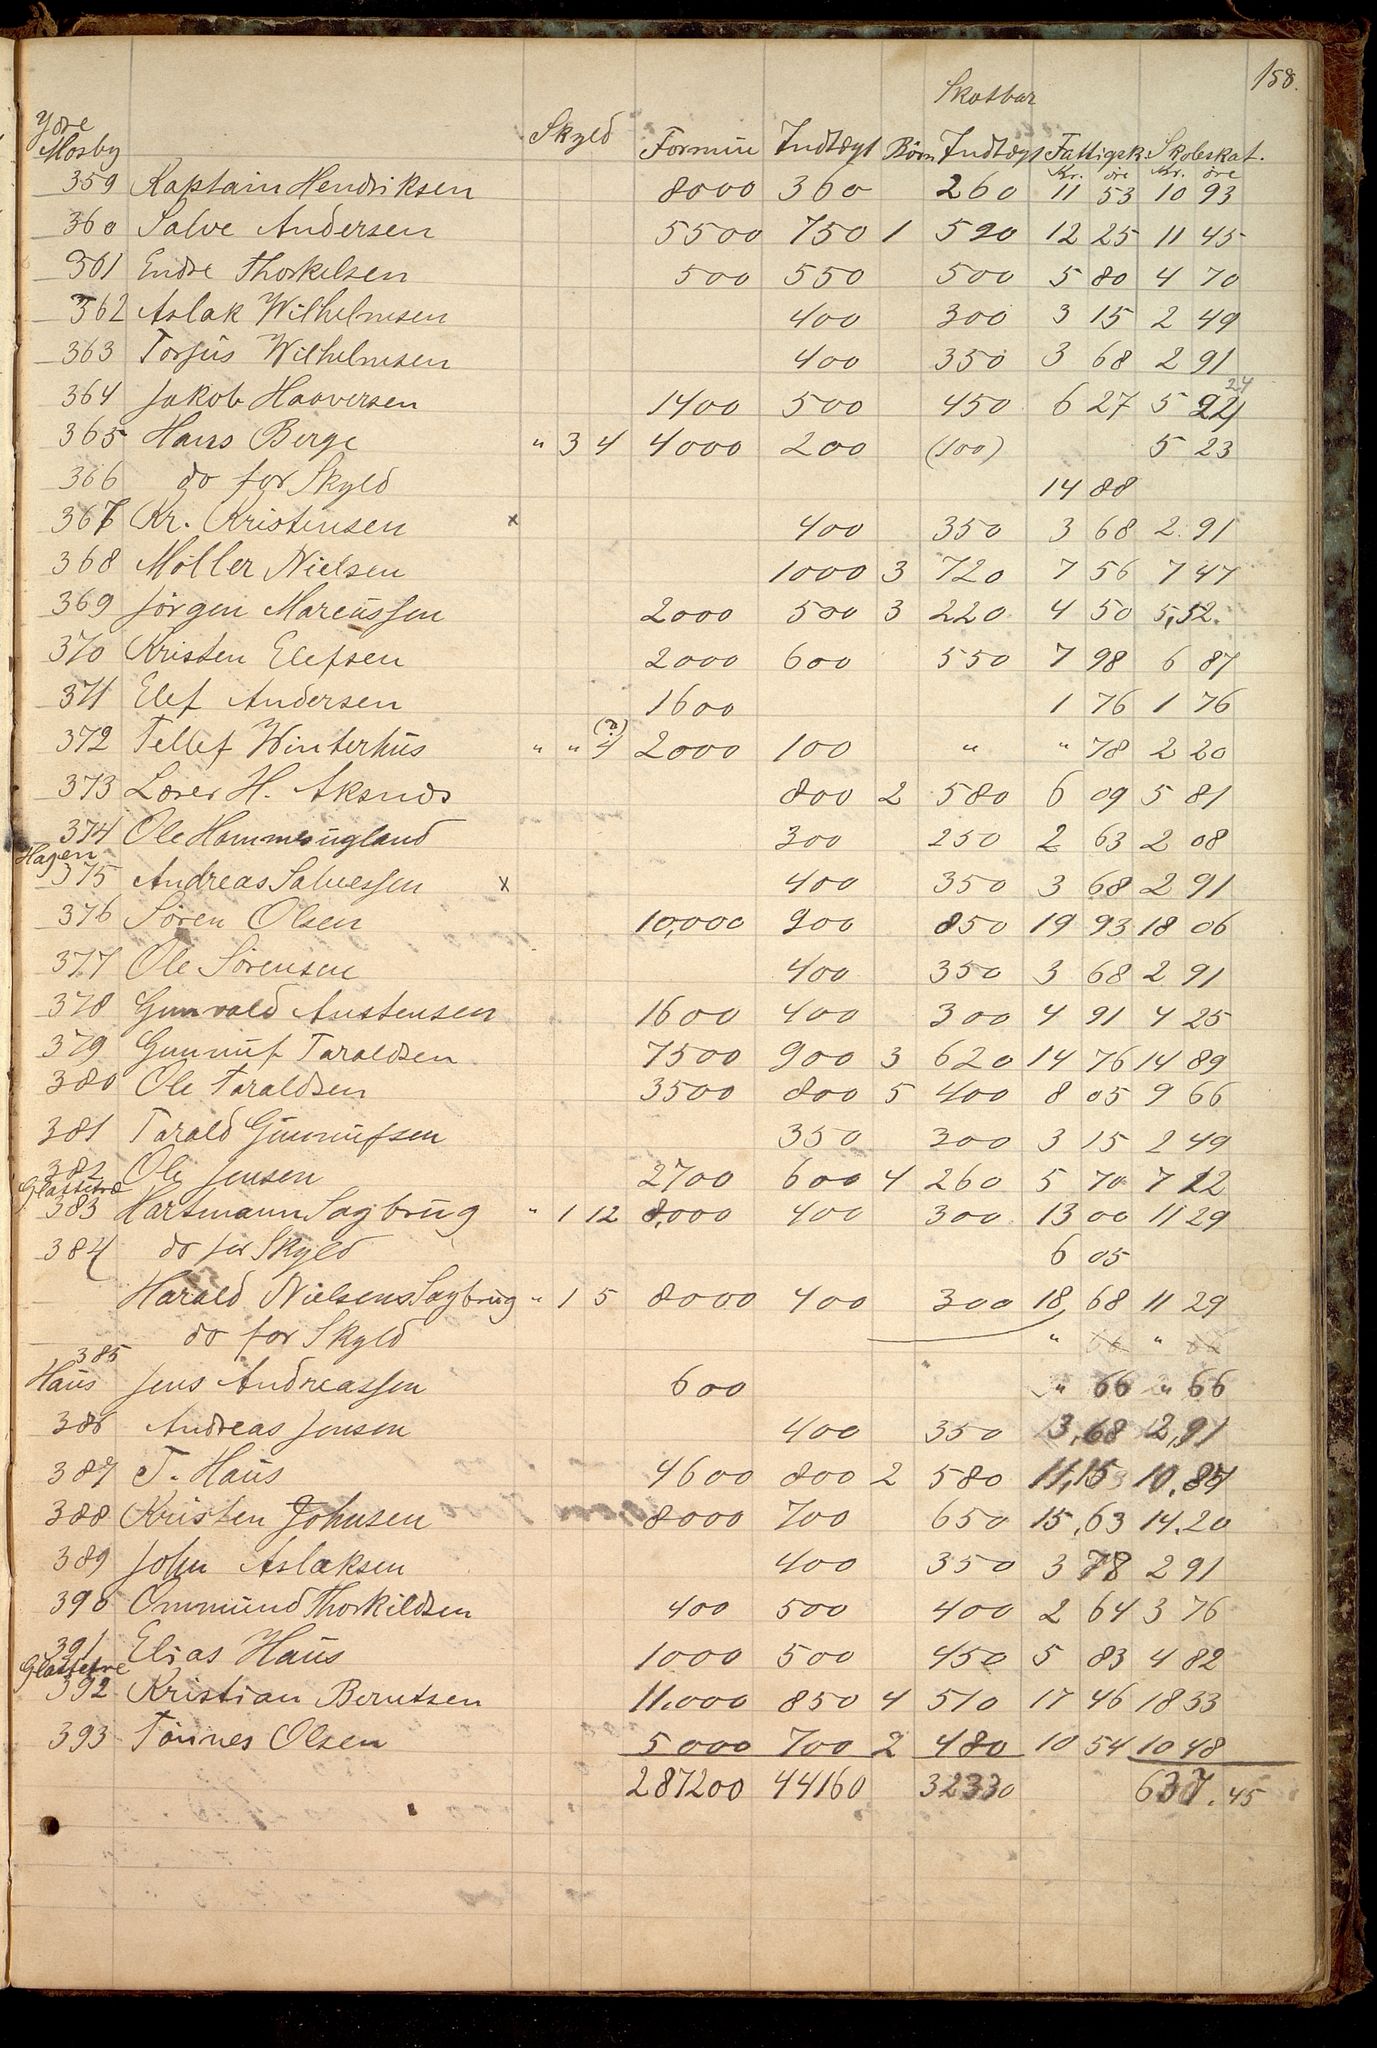 158.
Skatbar
Ydre
Mosby Skyld Formue Indtægt Börn Indtægt Fattigsk. Skoleskat.
Kr. öre Kr. öre
359 Kaptain Hendriksen 8000 360 260 11 53 10 93
360 Salve Andersen 5500 750 1 590 12 25 11 45
361 Endre Thorkelsen 500 550 500 5 80 4 70
362 Aslak Wilhelmsen 400 300 3 15 2 49
363 Torjus Wilhelmsen 400 350 3 68 2 91
24
364 Jakob Haaversen 1400 500 450 6 27 5 24
365 Hans Berge " 3 4 4000 200 (100) 5 23
366 do for Skyld 14 88
367 Kr. Kristensen x 400 350 3 68 2. 91
368 Möller Nielsen 1000 3 720 7 56 7 47
369 Jörgen Marcussen 2000 500 3 220 4 50 5,52.
370 Kristen Elefsen 2000 600 550 7 98 6 87
371 Elef Andersen 1600 1 76 1 76
372 Tellef Winterhus " " 4 (?) 2000 100 " " 78 2 20
373 Lærer H. Aksnes 800 2 580 6 09 5 81
374 Ole Hommeugland 300 250 2 63 2 08
Hagen
375 Andreas Salvessen x 400 350 3 68 2 91
376 Sören Olsen 10,000 900 850 19 93 18 06
377 Ole Sörensen 400 350 3 68 2 91
378 Gunvald Austensen 1600 400 300 4 91 4 25
379 Gunnuf Taraldsen 7500 900 3 620 14 76 14 89
380 Ole Taraldsen 3500 800 5 400 8 05 9 66
381 Tarald Gunnufsen 350 300 3 15 2 49
382 Ole Jensen 2700 600 4 260 5 70 7 22
Glattetre
383 Hartmann Sagbrug " 1 12 8,000 400 300 13 00 11 29
384 do for Skyld 6 05
Harald Nielsens Sagbrug " 1 5 8000 400 300 18 68 11 29
do for Skyld " 66 " 66
385
Haus Jens Andreassen 600 " 66 " 66
386 Andreas Jensen 400 350 3,68 2,91
387 T. Haus 4600 800 2 580 11,15 10.87
388 Kristen Johnsen 8000 700 650 15,63 14.20
389 John Aslaksen 400 350 3 78 2 91
390 Ommund Thorkildsen 400 500 400 2 64 3 76
391 Elias Haus 1000 500 450 5 83 4 82
Glattetre
392 Kristian Berntsen 11.000 850 4 510 17 46 18 33
393 Tönnes Olsen 5000 700 2 480 10 54 10 48
287200 44160 32330 637.45